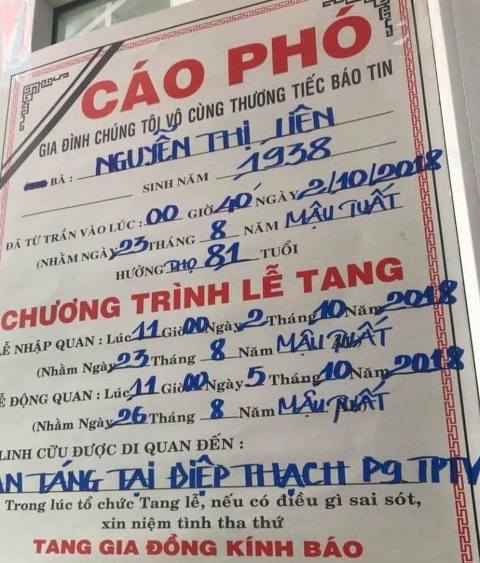 CÁO PHÓ
GIA ĐÌNH CHÚNG TÔI VÔ CÙNG THƯƠNG TIẾC BÁO TIN
BÀ : NGUYỄN THỊ LIÊN
SINH NĂM 1938
ĐÃ TỪ TRẦN VÀO LÚC : 00 GIỜ 40' NGÀY 2/10/2018
(NHẰM NGÀY 23 THÁNG 8 NĂM MẬU TUẤT
HƯỞNG THỌ 81 TUỔI
CHƯƠNG TRÌNH LỄ TANG
LỄ NHẬP QUAN : Lúc 11 Giờ 00 Ngày 2 Tháng 10 Năm 2018
(Nhằm Ngày 23 Tháng 8 Năm MẬU TUẤT
LỄ ĐỘNG QUAN : Lúc 11 Giờ 00 Ngày 5 Tháng 10 Năm 2018
(Nhằm Ngày 26 Tháng 8 Năm MẬU TUẤT
LINH CỮU ĐƯỢC DI QUAN ĐẾN :
AN TÁNG TẠI ĐIỆP THẠCH P9 TPTV
Trong lúc tổ chức Tang lễ, nếu có điều gì sai sót,
xin niệm tình tha thứ
TANG GIA ĐỒNG KÍNH BÁO